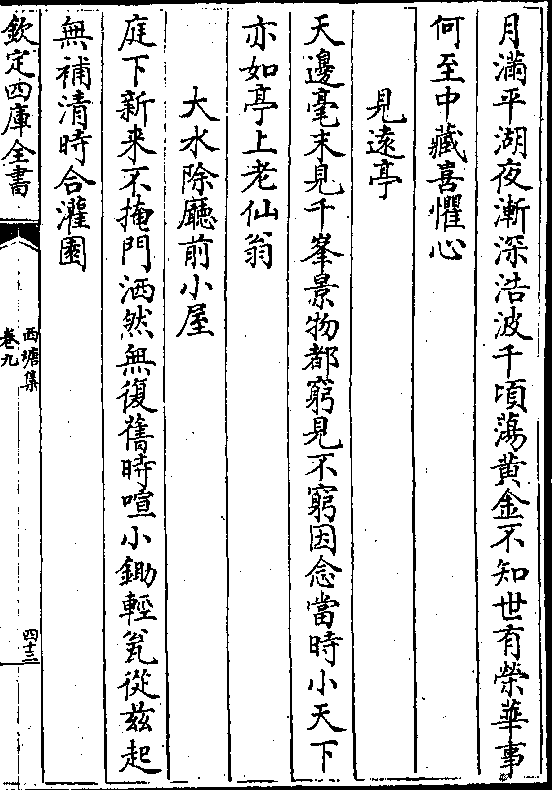 月滿平湖夜漸深浩波千頃蕩黃金不知世有榮華事
何至中藏喜懼心
見遠亭
天邊毫末見千峯景物都窮見不窮因念當時小天下
亦如亭上老仙翁
大水除廳前小屋
庭下新來不掩門洒然無復舊時喧小鋤輕瓮從兹起
無補清時合灌園
欽定四庫全書
西塘集
卷九
四十三